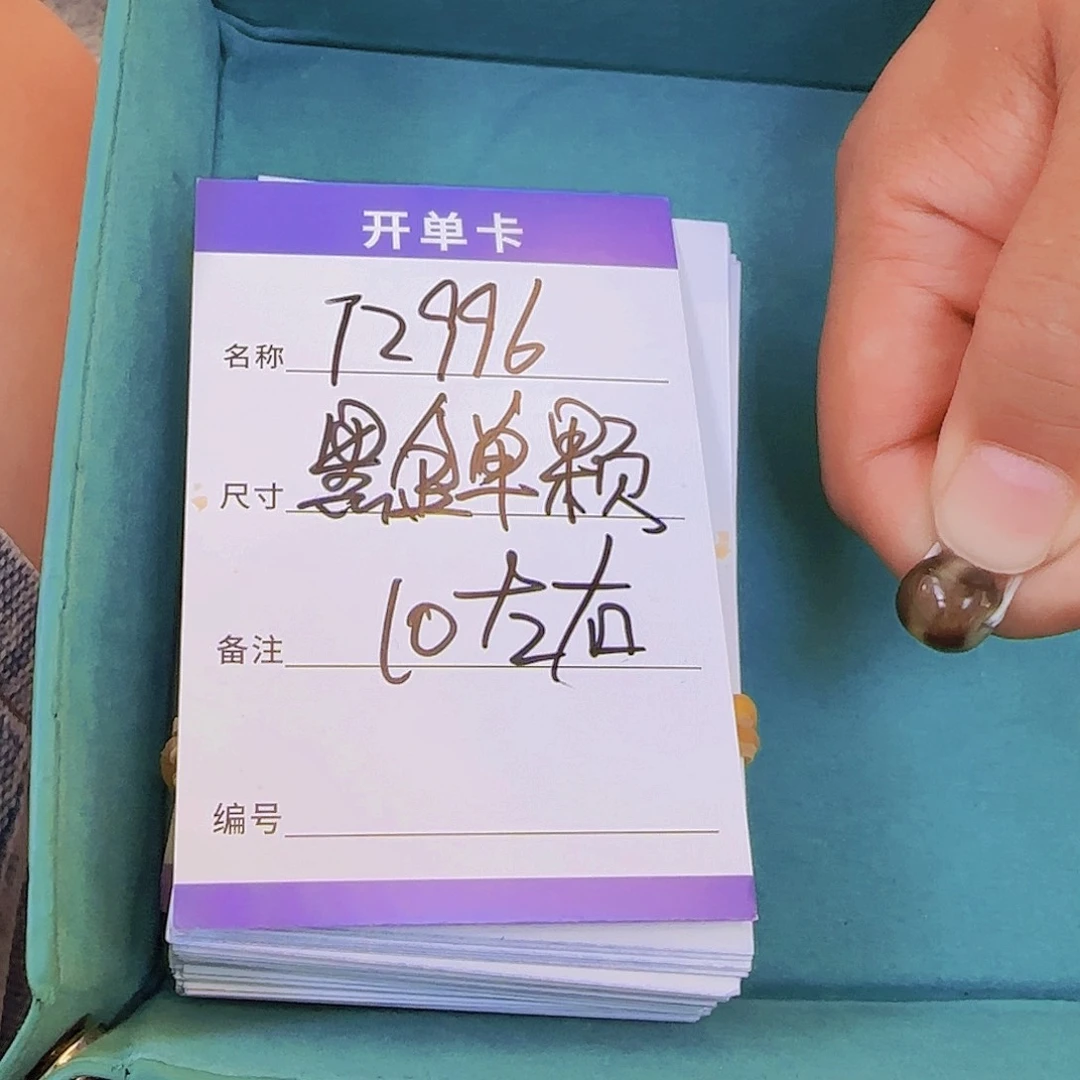 开单卡
名称 72996
尺寸 黑金单颗
备注 10左右
编号